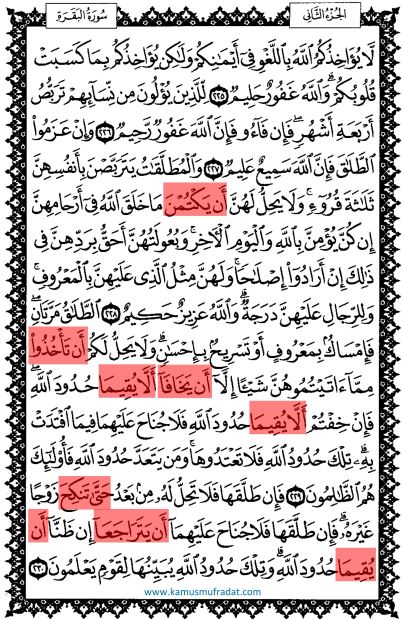 الجزء الثاني
سورة البقرة
لَّا يُؤَاخِذُكُمُ اللَّهُ بِاللَّغْوِ فِي أَيْمَانِكُمْ وَلَٰكِن يُؤَاخِذُكُم بِمَا كَسَبَتْ
قُلُوبُكُمْ ۗ وَاللَّهُ غَفُورٌ حَلِيمٌ ٢٢٥ لِّلَّذِينَ يُؤْلُونَ مِن نِّسَائِهِمْ تَرَبُّصُ
أَرْبَعَةِ أَشْهُرٍ ۖ فَإِن فَاءُو فَإِنَّ اللَّهَ غَفُورٌ رَّحِيمٌ ٢٢٦ وَإِنْ عَزَمُوا
الطَّلَاقَ فَإِنَّ اللَّهَ سَمِيعٌ عَلِيمٌ ٢٢٧ وَالْمُطَلَّقَاتُ يَتَرَبَّصْنَ بِأَنفُسِهِنَّ
ثَلَاثَةَ قُرُوءٍ ۚ وَلَا يَحِلُّ لَهُنَّ أَن يَكْتُمْنَ مَا خَلَقَ اللَّهُ فِي أَرْحَامِهِنَّ
إِن كُنَّ يُؤْمِنَّ بِاللَّهِ وَالْيَوْمِ الْآخِرِ ۚ وَبُعُولَتُهُنَّ أَحَقُّ بِرَدِّهِنَّ فِي
ذَٰلِكَ إِنْ أَرَادُوا إِصْلَاحًا ۚ وَلَهُنَّ مِثْلُ الَّذِي عَلَيْهِنَّ بِالْمَعْرُوفِ ۚ
وَلِلرِّجَالِ عَلَيْهِنَّ دَرَجَةٌ ۗ وَاللَّهُ عَزِيزٌ حَكِيمٌ ٢٢٨ الطَّلَاقُ مَرَّتَانِ ۖ
فَإِمْسَاكٌ بِمَعْرُوفٍ أَوْ تَسْرِيحٌ بِإِحْسَانٍ ۗ وَلَا يَحِلُّ لَكُمْ أَن تَأْخُذُوا
مِمَّا آتَيْتُمُوهُنَّ شَيْئًا إِلَّا أَن يَخَافَا أَلَّا يُقِيمَا حُدُودَ اللَّهِ ۖ
فَإِنْ خِفْتُمْ أَلَّا يُقِيمَا حُدُودَ اللَّهِ فَلَا جُنَاحَ عَلَيْهِمَا فِيمَا افْتَدَتْ
بِهِ ۗ تِلْكَ حُدُودُ اللَّهِ فَلَا تَعْتَدُوهَا ۚ وَمَن يَتَعَدَّ حُدُودَ اللَّهِ فَأُولَٰئِكَ
هُمُ الظَّالِمُونَ ٢٢٩ فَإِن طَلَّقَهَا فَلَا تَحِلُّ لَهُ مِن بَعْدُ حَتَّىٰ تَنكِحَ زَوْجًا
غَيْرَهُ ۗ فَإِن طَلَّقَهَا فَلَا جُنَاحَ عَلَيْهِمَا أَن يَتَرَاجَعَا إِن ظَنَّا أَن
يُقِيمَا حُدُودَ اللَّهِ ۗ وَتِلْكَ حُدُودُ اللَّهِ يُبَيِّنُهَا لِقَوْمٍ يَعْلَمُونَ ٢٣٠
www.kamusmufradat.com